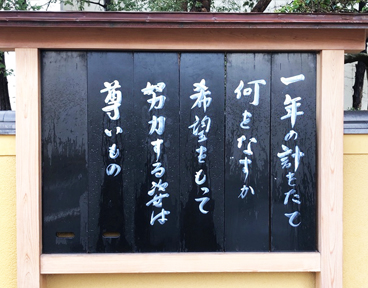 一年の計をたて
何をなすか
希望をもって
努力する姿は
尊いもの